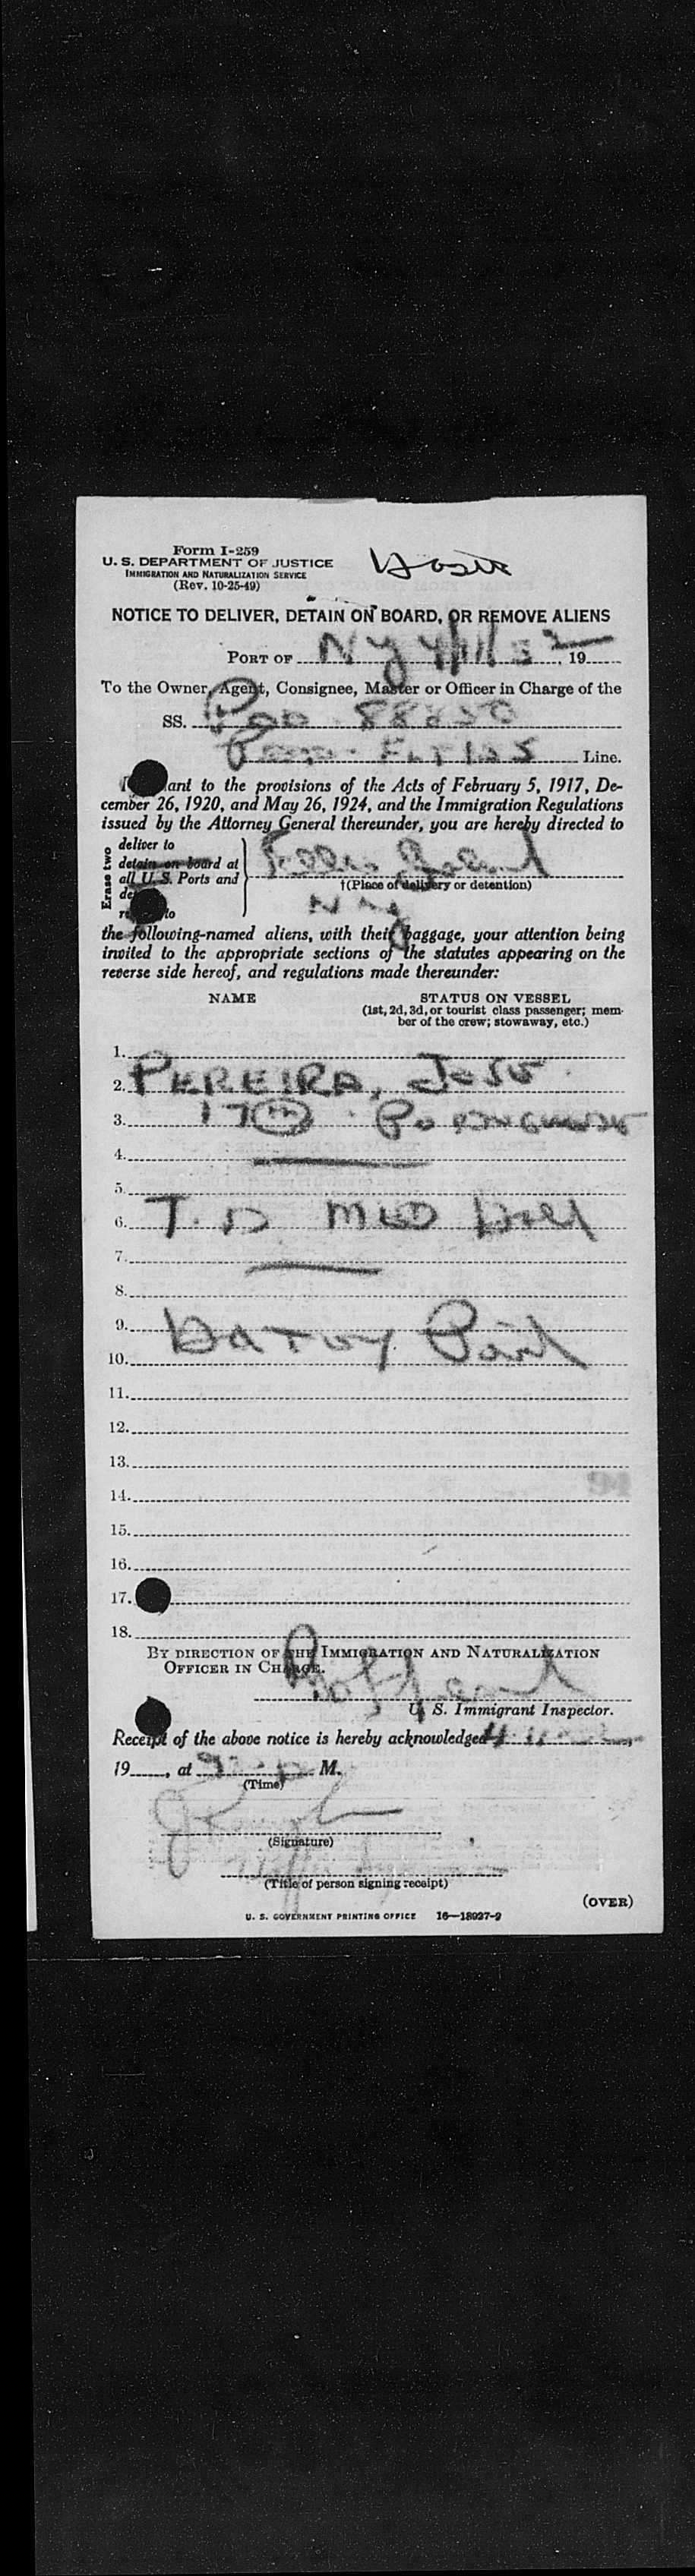 Form I-259
U. S. DEPARTMENT OF JUSTICE
IMMIGRATION AND NATURALIZATION SERVICE
(Rev. 10-25-49)
NOTICE TO DELIVER, DETAIN ON BOARD, OR REMOVE ALIENS
PORT OF N Y 4/11/52, 19
To the Owner, Agent, Consignee, Master or Officer in Charge of the
SS. 88850
Line.
ant to the provisions of the Acts of February 5, 1917, De-
cember 26, 1920, and May 26, 1924, and the Immigration Regulations
issued by the Attorney General thereunder, you are hereby directed to
Erase two
deliver to
detain on board at
all U. S. Ports and
†(Place of delivery or detention)
to
N Y
the following-named aliens, with their baggage, your attention being
invited to the appropriate sections of the statutes appearing on the
reverse side hereof, and regulations made thereunder:
NAME
STATUS ON VESSEL
(1st, 2d, 3d, or tourist class passenger; mem-
ber of the crew; stowaway, etc.)
1.
2. PEREIRA, Jose
3. 17 (m)
4.
5.
6. T. D MED Hold
7.
8.
9.
10.
11.
12.
13.
94
14.
15.
16.
17.
18.
BY DIRECTION OF THE IMMIGRATION AND NATURALIZATION
OFFICER IN CHARGE.
U. S. Immigrant Inspector.
Receipt of the above notice is hereby acknowledged
19, at M.
(Time)
(Signature)
(Title of person signing receipt)
(OVER)
U. S. GOVERNMENT PRINTING OFFICE 16—18927-2